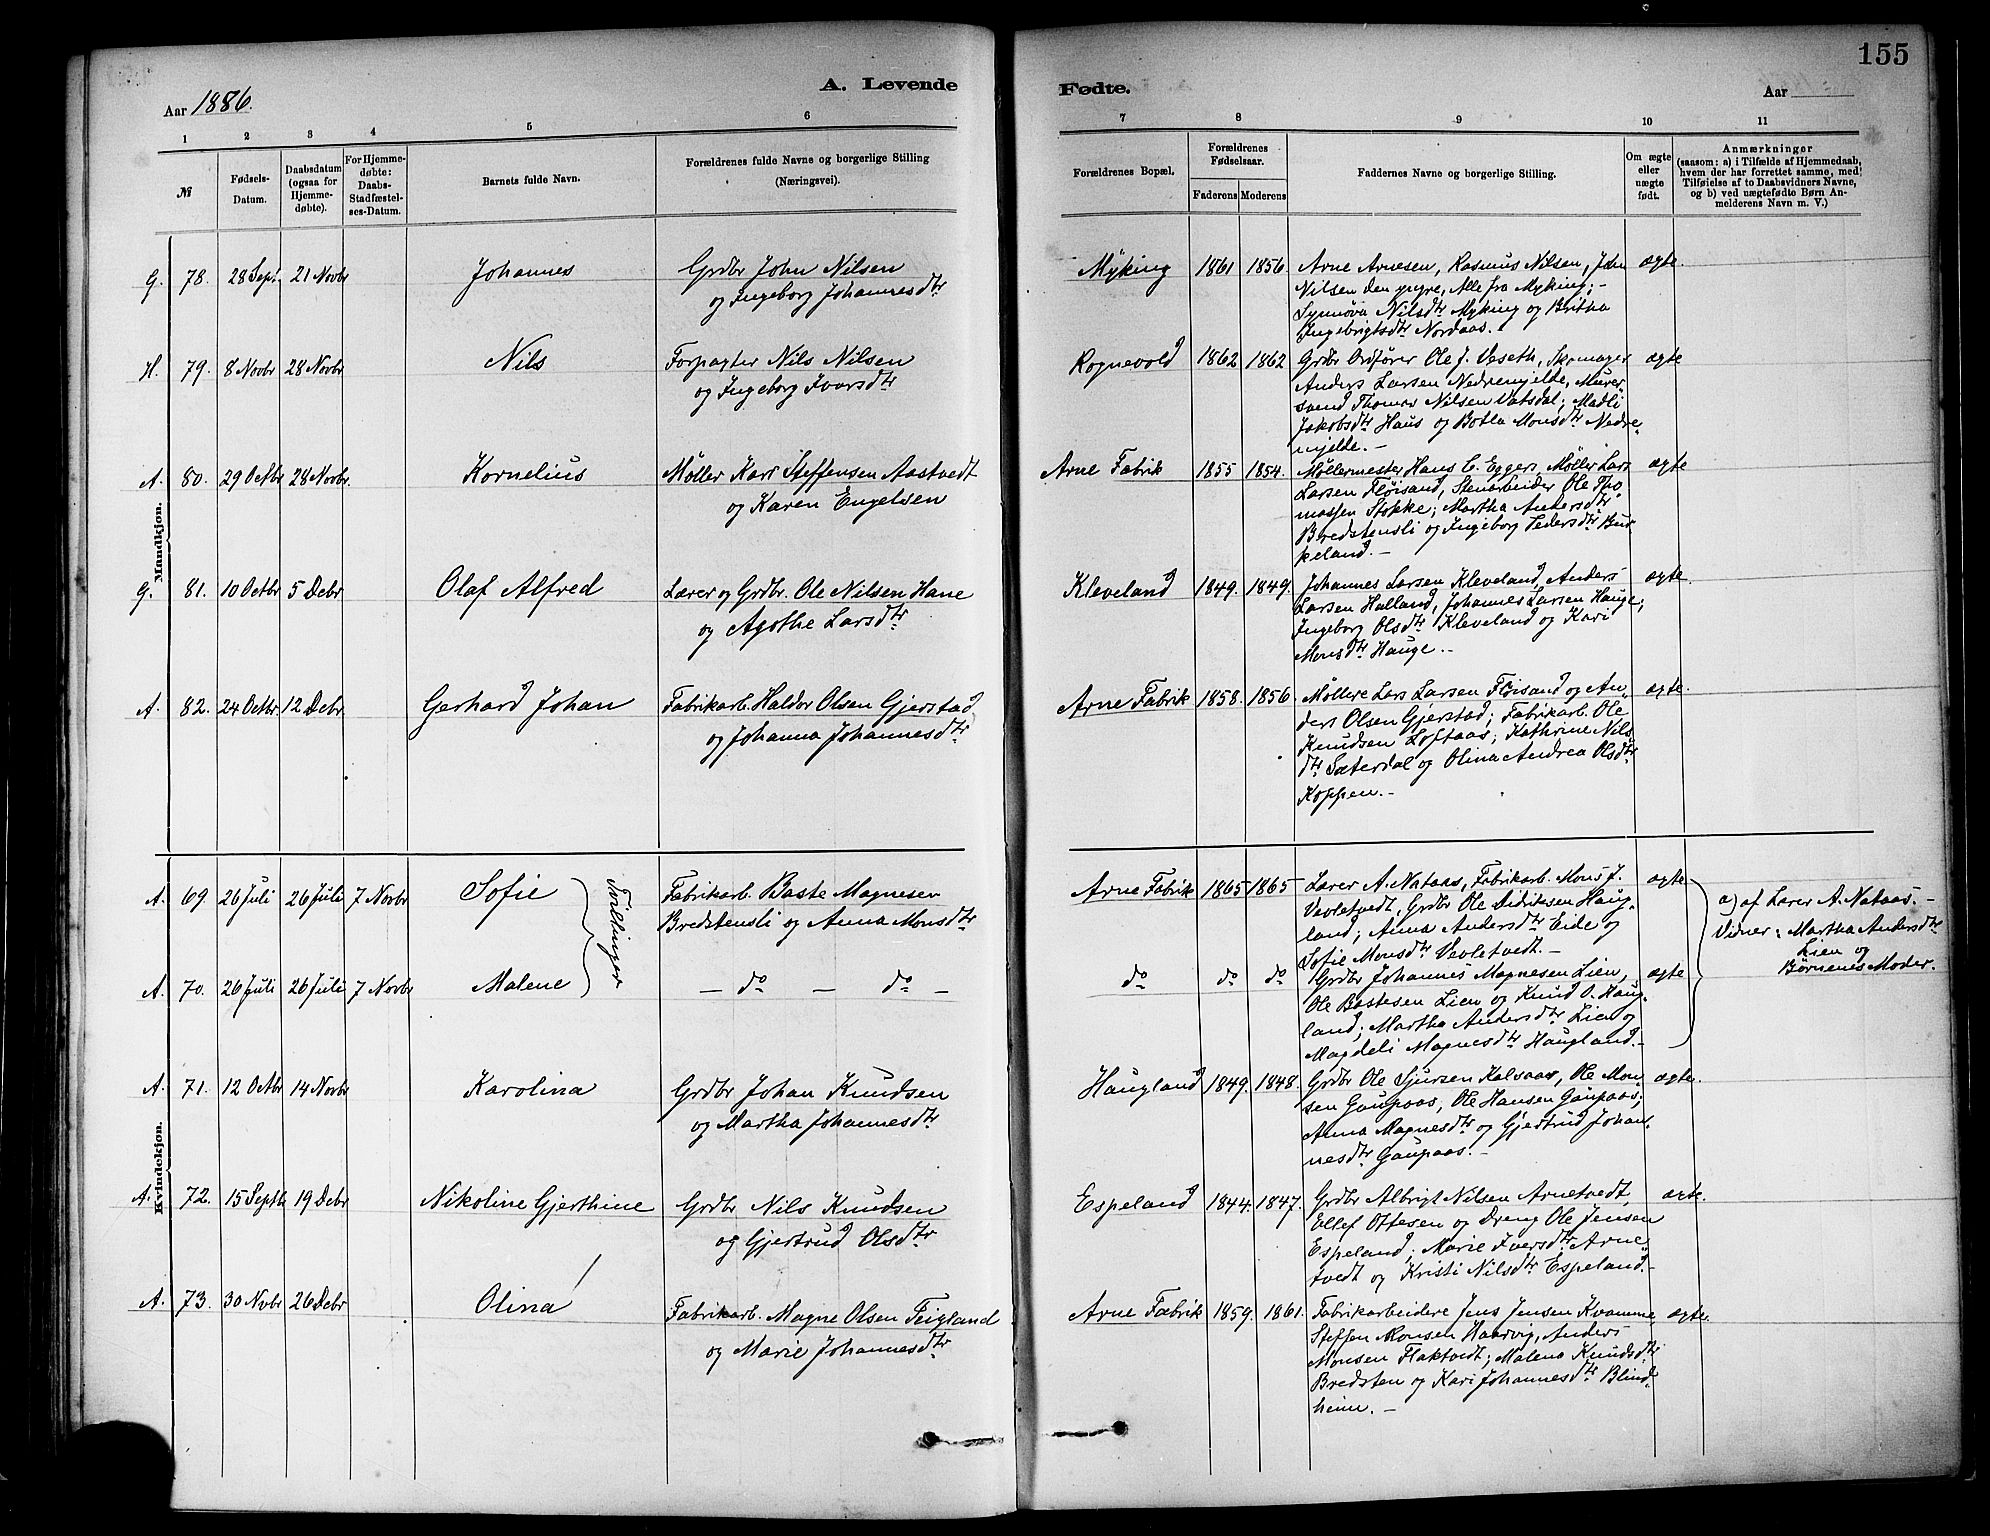 155
A. Levende
Fødte.
Aar 1886.
Aar
1 2 3 4 5 6 7 8 9 10 11
№
Fødsels-
Datum.
Daabsdatum
(ogsaa for
Hjemme-
døbte).
For Hjemme-
døbte:
Daabs-
Stadfæstel-
ses-Datum.
Barnets fulde Navn.
Forældrenes fulde Navne og borgerlige Stilling
(Næringsvei).
Forældrenes Bopæl.
Forældrenes
Fødselsaar.
Faderens
Moderens
Faddernes Navne og borgerlige Stilling.
Om ægte
eller
uægte
født.
Anmærkninger
(saasom: a) i Tilfælde af Hjemmedaab,
hvem der har forrettet samme, med
Tilføielse af to Daabsvidners Navne,
og b) ved uægtefødte Børn An-
melderens Navn m. V.)
Mandkjøn.
G. 78. 28 Sept. 21 Novbr Johannes
Grdbr John Nilsen
og Ingeborg Johannesdtr
Myking 1861 1856
Arne Arnesen, Rasmus Nilsen, John
Nilsen den yngre, Alle fra Myking;-
Synnøva Nilsdtr Myking og Britha
Ingebrigtsdtr Nordaas.
ægte.
H. 79. 8 Novbr 28 Novbr Nils
Forpagter Nils Nilsen
og Ingeborg Ivarsdtr
Rognevold 1862 1862
Grdbr Ordfører Ole J. Veseth, Skomager
Anders Larsen Nedremjelde, Murer-
svend Thomas Nilsen Vatsdal; Madli
Jakobsdtr Haus og Botla Monsdtr Nedre-
mjelde.-
ægte
A. 80. 29 Octbr 28 Novbr. Kornelius
Møller Karl Steffensen Aastvedt
og Karen Engelsen
Arne Fabrik 1855 1854.
Møllermester Hans C. Eggers, Møller Lars
Larsen Fløisand, Stenarbeider Ole Tho-
massen Stokke; Martha Andersdtr
Bredstensli og Ingeborg Pedersdtr Bur-
keland.-
ægte
G. 81. 10 Octbr 5 Debr Olaf Alfred
Lærer og Grdbr. Ole Nilsen Hane
og Agathe Larsdtr
Kleveland 1849. 1849.
Johannes Larsen Kleveland, Anders
Larsen Halland, Johannes Larsen Hauge;
Ingeborg Olsdtr Kleveland og Kari
Monsdtr Hauge.-
ægte.
A. 82. 24 Octbr. 12 Debr Gerhard Johan
Fabrikarb. Haldor Olsen Gjerstad
og Johanna Johannesdtr
Arne Fabrik 1858. 1856.
Møllere Lars Larsen Fløisand og An-
ders Olsen Gjerstad; Fabrikarb. Ole
Knudsen Loftaas; Kathrine Nils-
dtr Sæterdal og Olina Andrea Olsdtr
Koppen.-
ægte.
Kvindekjøn.
A. 69. 26 Juli 26 Juli 7 Novbr Sofie
Tvillinger
Fabrikarb. Baste Magnesen
Bredstensli og Anna Monsdtr
Arne Fabrik 1865 1865
Lærer A. Nataas, Fabrikarb. Mons J.
Vevletvedt, Grdbr Ole Didriksen Haug-
land; Anna Andersdtr Eide og
Sofie Monsdtr Vevletvedt.-
ægte
a) af Lærer A. Nataas.-
Vidner: Martha Andersdtr
Lien og
Børnenes Moder.
A. 70. 26 Juli 26 Juli 7 Novbr Malene
- do - do -
do do do
Grdbr Johannes Magnesen Lien,
Ole Bastesen Lien og Knud O. Haug-
land; Martha Andersdtr Lien og
Magdeli Magnesdtr Haugland.-
ægte
A. 71. 12 Octbr 14 Novbr Karolina
Grdbr Johan Knudsen
og Martha Johannesdtr
Haugland 1849. 1848.
Grdbr Ole Sjursen Kalsaas, Ole Mon-
sen Gaupaas, Ole Hansen Gaupaas;
Anna Magnesdtr og Gjertrud Johan-
nesdtr Gaupaas.-
ægte.
A. 72. 15 Septbr 19 Debr Nikoline Gjerthine
Grdbr Nils Knudsen
og Gjertrud Olsdtr
Espeland 1844. 1847.
Grdbr Albrigt Nilsen Arnetvedt,
Ellef Ottesen og Dreng Ole Jensen
Espeland; Marie Iversdtr Arne-
tvedt og Kristi Nilsdtr Espeland.-
ægte.
A. 73. 30 Novbr 26 Debr Olina
Fabrikarb. Magne Olsen Teigland
og Marie Johannesdtr
Arne Fabrik 1859. 1861.
Fabrikarbeidere Jens Jensen Kvamme,
Steffen Monsen Haarvig, Anders
Monsen Flaktvedt; Malena Knudsdtr
Bredsten og Kari Johannesdtr Blind-
heim.-
ægte.